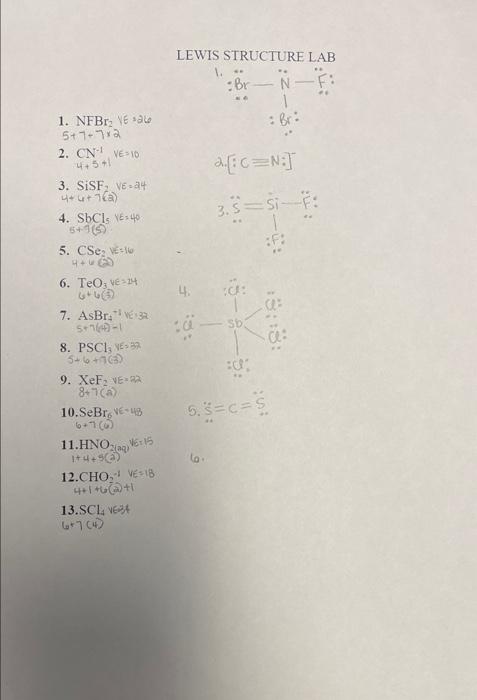 LEWIS STRUCTURE LAB
1.
:Br — N — F:
:Br:
1. NFBr₂ VE=26
5+7+7×2
2. CN⁻¹ VE=10
4+5+1
2. [:C≡N:]⁻
3. SiSF₂ VE=24
4+6+7(2)
3. S=Si—F:
:F:
4. SbCl₅ VE=40
5+7(5)
5. CSe₂ VE=16
4+6(2)
6. TeO₃ VE=24
6+6(3)
4. :Cl:
Cl:
:Cl — Sb
Cl:
:Cl:
7. AsBr₄⁺¹ VE=32
5+7(4)-1
8. PSCl₃ VE=32
5+6+7(3)
9. XeF₂ VE=22
8+7(2)
10. SeBr₆ VE=48
6+7(6)
5. S=C=S
11. HNO₂₍aq₎ VE=15
1+4+5(2)
6.
12. CHO₂⁻¹ VE=18
4+1+6(2)+1
13. SCl₄ VE=34
6+7(4)